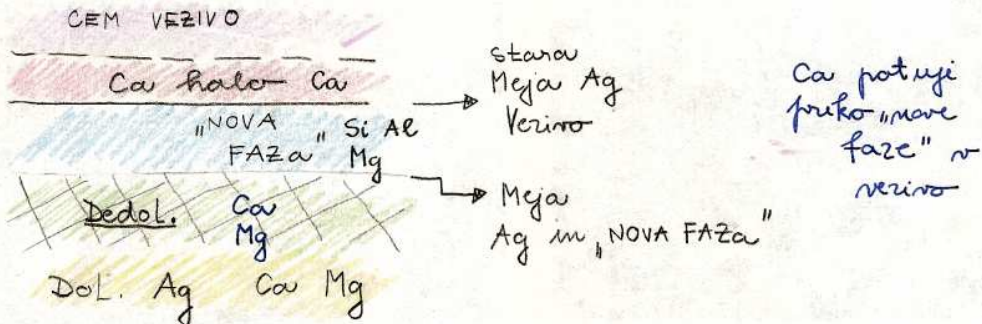 CEM VEZIVO
Ca halo Ca
„NOVA
FAZa" Si Al
Mg
Dedol. Ca
Mg
DOL. Ag Ca Mg
stara
Meja Ag
Vezivo
Meja
Ag in „NOVA FAZa"
Ca potuje
preko „nove
faze" v
vezivo